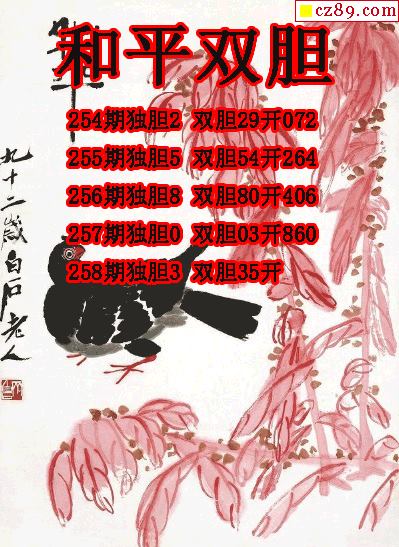 cz89.com
和平双胆
254期独胆2 双胆29开072
255期独胆5 双胆54开264
256期独胆8 双胆80开406
257期独胆0 双胆03开860
258期独胆3 双胆35开
九十二岁白石老人